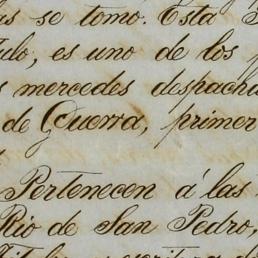 as se tomó. Esta
ulo, es uno de los
s mercedes despacha
de Guerra, primer
Pertenecen á las
Rio de San Pedro,